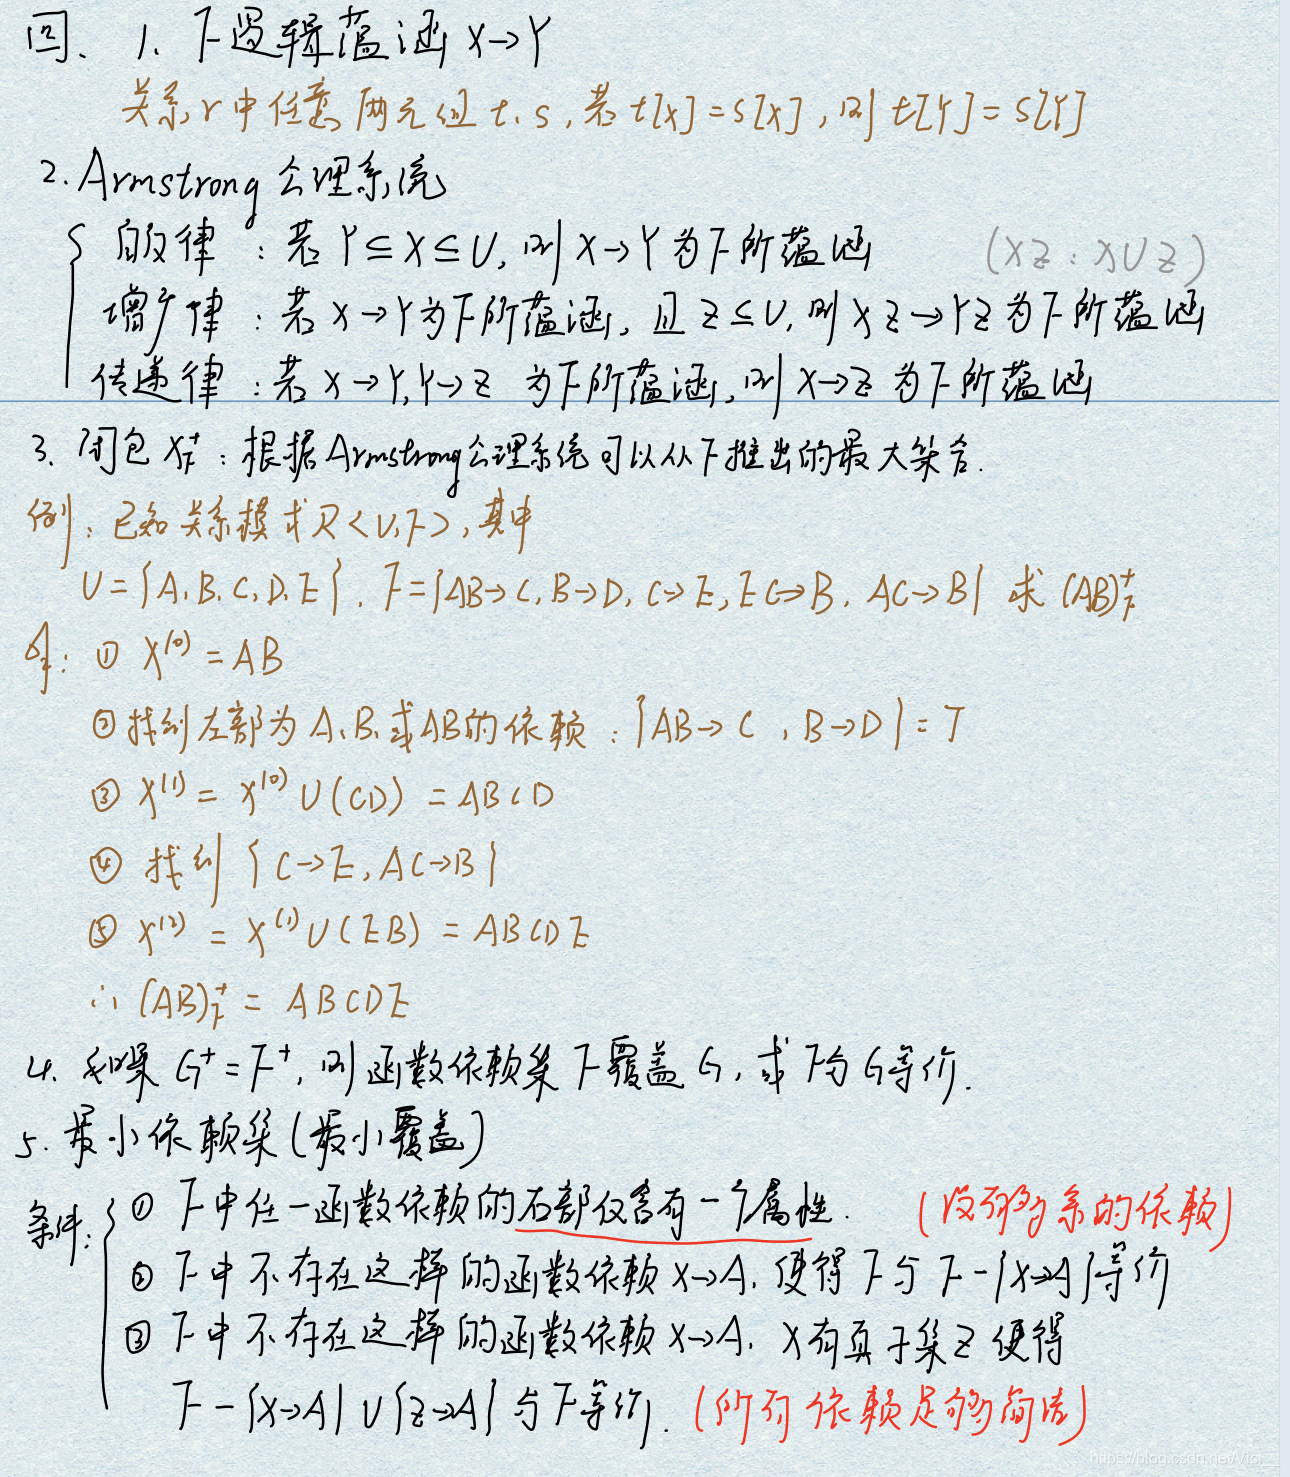 四、1、F逻辑蕴涵 X→Y
关系r中任意两元组t、s,若t[X]=s[X],则t[Y]=s[Y]
2. Armstrong公理系统
自反律:若Y⊆X⊆U,则X→Y为F所蕴涵 (XZ:X∪Z)
增广律:若X→Y为F所蕴涵,且Z⊆U,则XZ→YZ为F所蕴涵
传递律:若X→Y,Y→Z 为F所蕴涵,则X→Z为F所蕴涵
3、闭包 X_F^+:根据Armstrong公理系统可以从F推出的最大集合.
例:已知关系模式R<U,F>,其中
U={A、B、C、D、E}. F={AB→C,B→D,C→E,EC→B,AC→B} 求(AB)_F^+
解:① X^(0)=AB
②找到左部为A、B、或AB的依赖:{AB→C,B→D}=T
③ X^(1)=X^(0)∪(CD)=ABCD
④ 找到{C→E,AC→B}
⑤ X^(2)=X^(1)∪(EB)=ABCDE
∴(AB)_F^+=ABCDE
4、如果G^+=F^+,则函数依赖集F覆盖G,或F与G等价.
5、最小依赖集(最小覆盖)
条件:① F中任一函数依赖的右部仅含有一个属性. (没有多余的依赖)
② F中不存在这样的函数依赖X→A,使得F与F-{X→A}等价
③ F中不存在这样的函数依赖X→A,X有真子集Z使得
F-{X→A}∪{Z→A}与F等价. (所有依赖足够简洁)